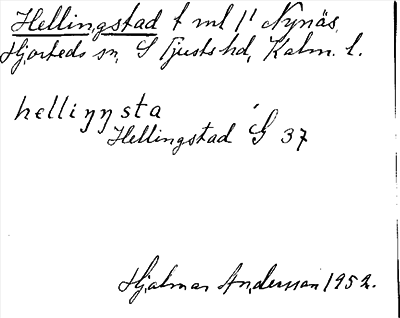 Hellingstad t ml 1¹ Nynäs
Hjorteds sn, S Tjusts hd, Kalm. l.
helliŋŋsta
Hellingstad G 37
Hjalmar Andersson 1952.